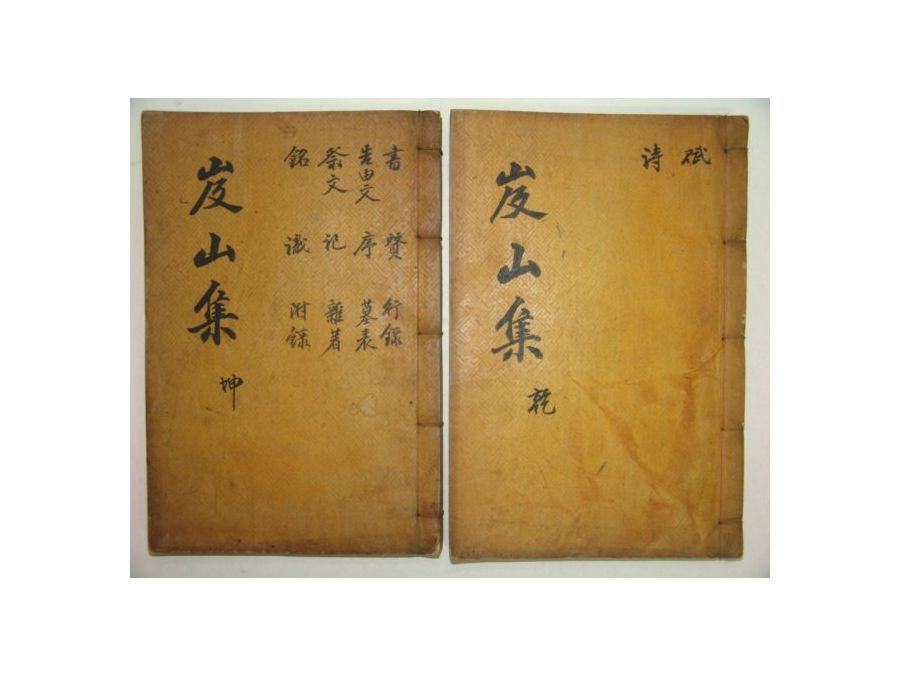 賦
詩
岌山集 乾
書 贊 行錄
告由文 序 墓表
祭文 記 雜著
銘 識 附錄
岌山集 坤